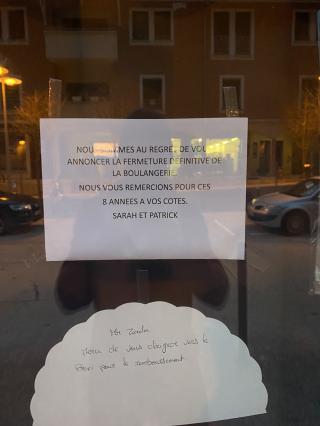 NOUS SOMMES AU REGRET DE VOUS
ANNONCER LA FERMETURE DÉFINITIVE DE
LA BOULANGERIE.
NOUS VOUS REMERCIONS POUR CES
8 ANNEES A VOS COTES.
SARAH ET PATRICK
Mr
Merci de vous changer vers le
pour le remboursement